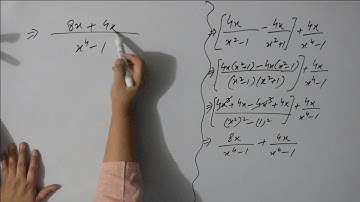 ⇒ (8x + 4x)/(x⁴ - 1)
⇒ [4x/(x²-1) - 4x/(x²+1)] + 4x/(x⁴-1)
⇒ [(4x(x²+1) - 4x(x²-1))/((x²-1)(x²+1))] + 4x/(x⁴-1)
⇒ [(4x³ + 4x - 4x³ + 4x)/((x²)² - (1)²)] + 4x/(x⁴-1)
⇒ 8x/(x⁴-1) + 4x/(x⁴-1)